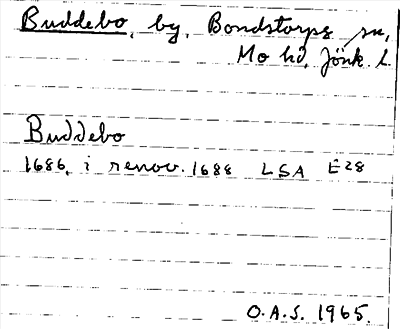 Buddebo, by, Bondstorps sn,
Mo hd, Jönk. l.
Buddebo
1686, i renov. 1688 LSA E28
O.A.S. 1965.